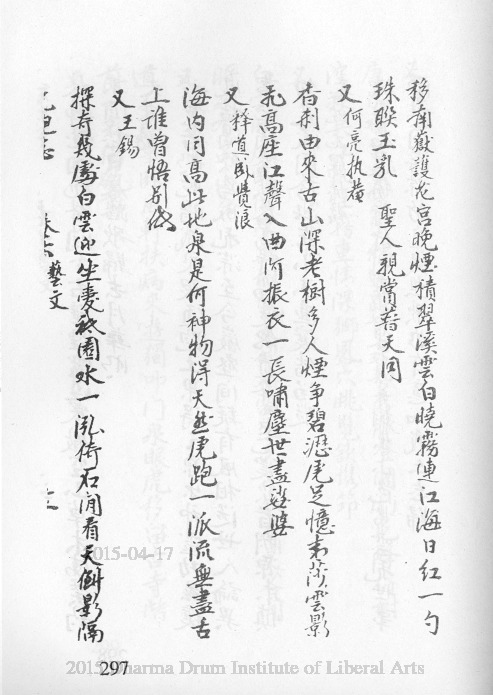 移南嶽護龙宮晚煙積翠溪雲白曉霧連江海日紅一勺
珠联玉乳 聖人親嘗普天同
又何亮执黄
香刹由來古山深老樹多人煙争碧瀝虎足憶雲影
飛高座江聲入曲阿振衣一長嘯塵世盡娑婆
又 釋道臥費浪
海内同高此地泉是何神物得天然虎跑一派流無盡舌
上誰曾悟别傳
又王錫
探奇幾處白雲迎坐愛祇園水一泓倚石閒看天倒影隔
志 卷六 藝文
297
2015-04-17
2015 Dharma Drum Institute of Liberal Arts